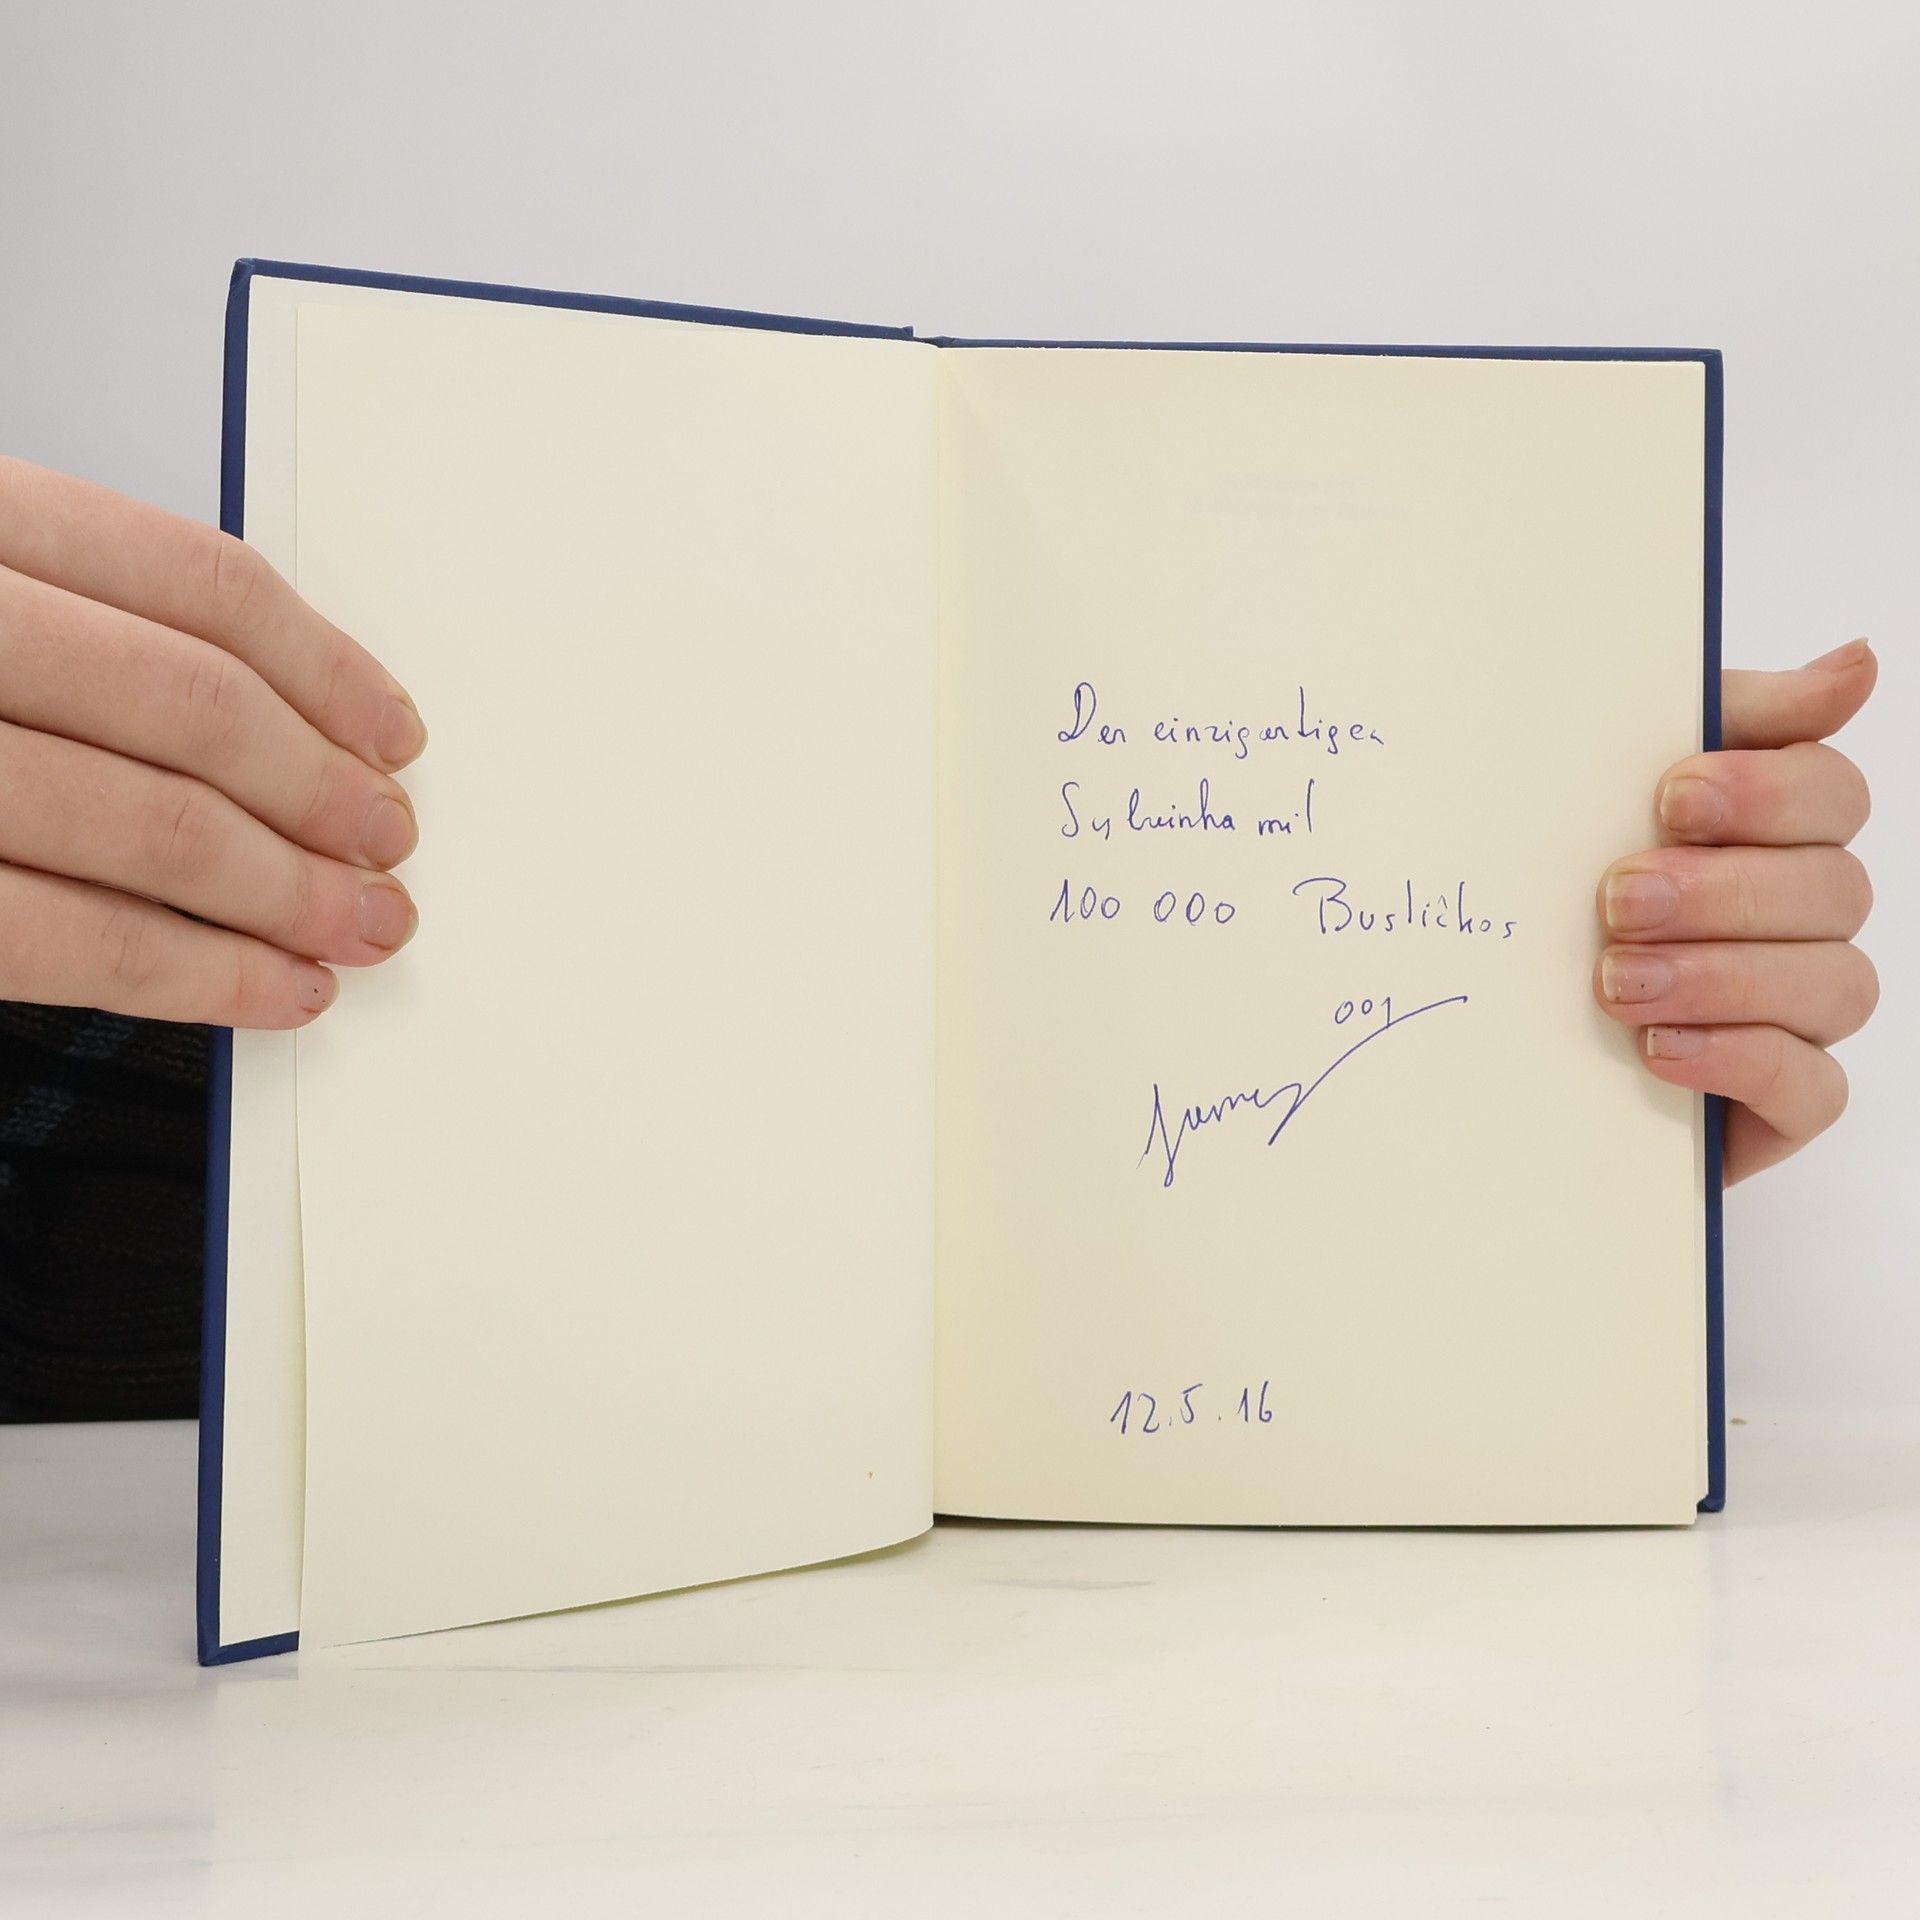 Der einzigartigen
Sylvinha mit
100 000 Busličkos
001
12.5.16